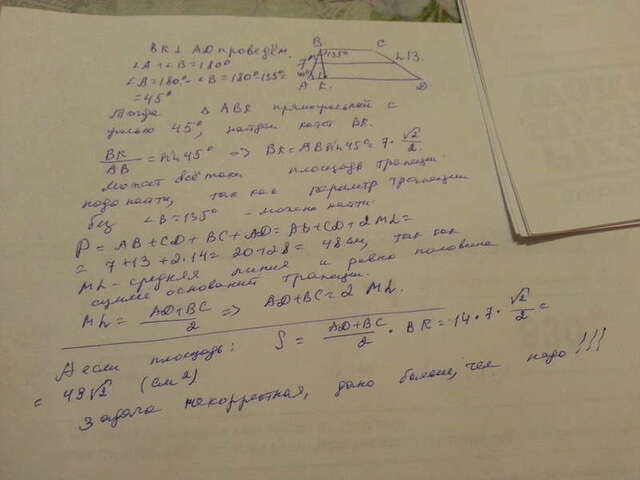 BK ⊥ AD проведём.
∠A + ∠B = 180°
∠A = 180° - ∠B = 180° - 135°
= 45°
B C
135°
7
13
A K D
Тогда Δ ABK прямоугольный с
углом 45°, найдем катет BK.
BK/AB = sin 45° => BK = AB sin 45° = 7 · √2/2.
Может всё таки площадь трапеции
надо найти, так как периметр трапеции
без ∠B = 135° - можно найти:
P = AB + CD + BC + AD = AB + CD + 2ML =
= 7 + 13 + 2·14 = 20 + 28 = 48 см, так как
ML - средняя линия и равна половине
сумме оснований трапеции.
ML = (AD + BC)/2 => AD + BC = 2 ML.
А если площадь: S = (AD + BC)/2 · BK = 14 · 7 · √2/2 =
= 49√2 (см2)
Задача некорректная, дано больше, чем надо!!!